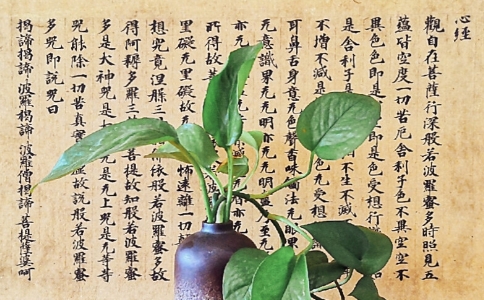 心经
觀自在菩薩行深般若波羅蜜多時照見五
蘊皆空度一切苦厄舍利子色不異空空不
異色色即是 即是色受想行
是舍利子是 不生不滅
不增不減是 无受想
耳鼻舌身意无色聲香味 法无眼界
无意識界无无明亦无无明 至无
亦无
所得故
罣礙无罣礙故 怖遠離一切
想究竟涅槃三 依般若波羅蜜多故
得阿耨多羅三 菩提故知般若波羅蜜
多是大神咒是 咒是无上咒是无等等
咒能除一切苦真實 虛故說般若波羅蜜
多咒即說咒曰
揭諦揭諦波羅揭諦波羅僧揭諦菩提薩婆訶